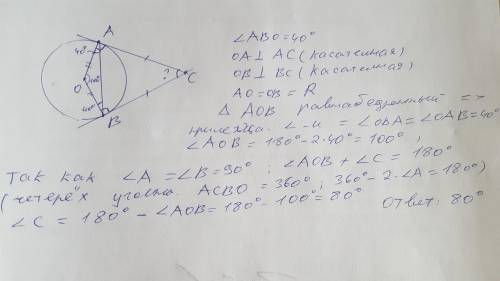 A
40°
O
100°
40°
B
?
C
∠ABO=40°
OA⊥AC (касательная)
OB⊥BC (касательная)
AO=OB=R
Δ AOB равнобедренный =>
∠-и = ∠OBA=∠OAB=40°
∠AOB = 180°-2·40°=100°,
Так как ∠A=∠B=90°; ∠AOB+∠C=180°
(четерёх уголка ACBO=360°; 360°-2·∠A=180°)
∠C=180°-∠AOB=180°-100°=80° Ответ: 80°